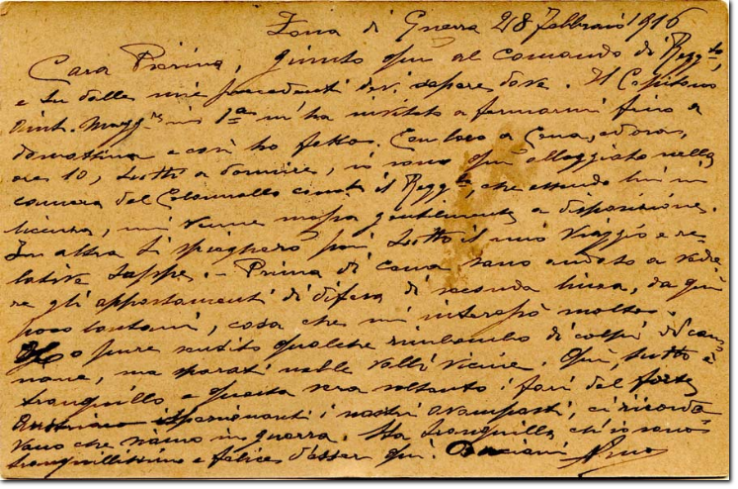 Zona di Guerra 28 Febbraio 1916
Cara Pierina, giunto qui al comando di Regg.to,
e tu dalle mie precedenti devi sapere dove. Il Capitano
Aiut. Magg.re in 1ª m'ha invitato a fermarmi fino a
domattina e così ho fatto. Con loro a Cena, ed ora,
ore 10, tutti a dormire, io sono qui alloggiato nella
camera del Colonnello com.te il Regg.to, che essendo lui in
licenza, mi venne messa gentilmente a disposizione.
In altra ti spiegherò poi tutto il mio viaggio e re-
lative tappe. - Prima di cena sono andato a vede-
re gli appostamenti di difesa di seconda linea, da qui
poco lontani, cosa che mi interessò molto.
Ho pure sentito qualche rimbombo di colpi di can-
none, ma sparati nelle valli vicine. Qui, tutto è
tranquillo e questa sera soltanto i fari del forte
Austriaco i nostri avamposti, ci ricorda
vano che siamo in guerra. Sta tranquilla ch'io sono
tranquillissimo e felice d'esser qui. Bacioni